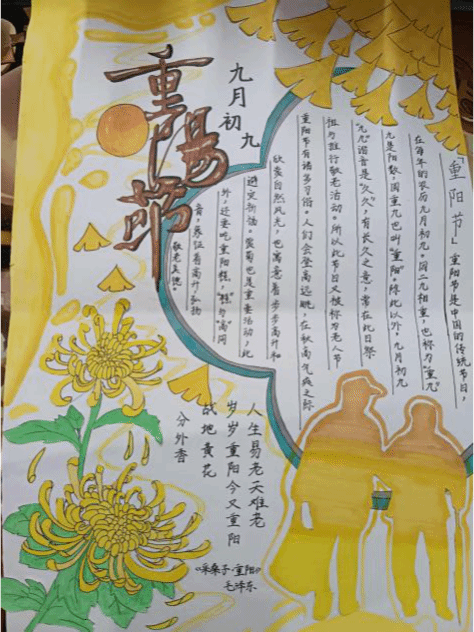 重阳节
九月
初九
「重阳节」重阳节是中国的传统节日，
在每年的农历九月初九。因二九相重，也称为“重九”
九是阳数，因重九也叫“重阳”。除此以外，九月初九
“九九”谐音是“久久”，有长久之意，常在此日祭
祖与推行敬老活动。所以此节日又被称为老人节
重阳节有诸多习俗。人们会登高远眺，在秋高气爽之际
欣赏自然风光，也寓意着步步高升和
避灾祈福。赏菊也是重要活动，此
外，还要吃重阳糕，“糕”与“高”同
音，象征着高升
敬老美德。
人生易老天难老
岁岁重阳今又重阳
战地黄花
分外香
《采桑子·重阳》
毛泽东